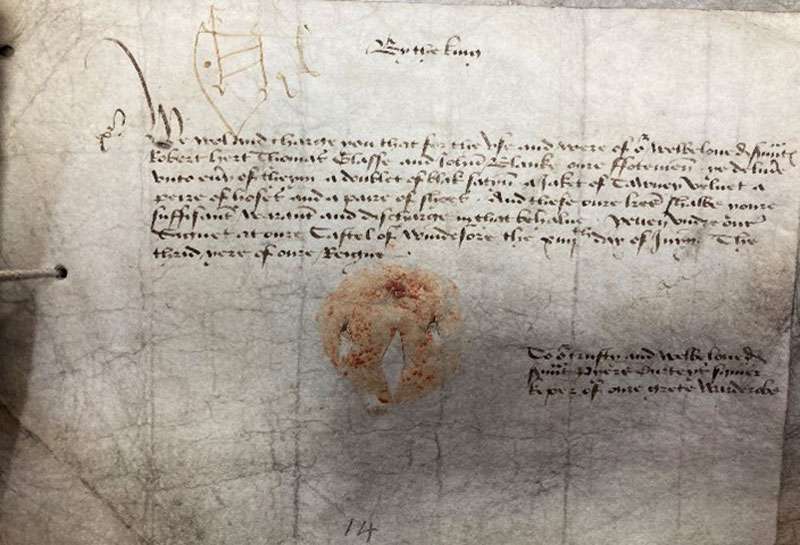 By the king
We wol and charge you that for the vse and were of or welbeloued
Robert hert Thomas Glasse and John Blanke oure ffotemen ye deliue
vnto euy of theym a doublet of blak satyn a Jaket of Tawney veluet a
peire of hoses and a paire of shoes And these oure lres shalbe youre
suffisant warant and discharge in that behalue Yeuen vndre oure
Signet at oure Castel of Windesore the day of The
thrid yere of oure Reigne
To or trusty and welbeloued
keper of oure grete Warderobe
14